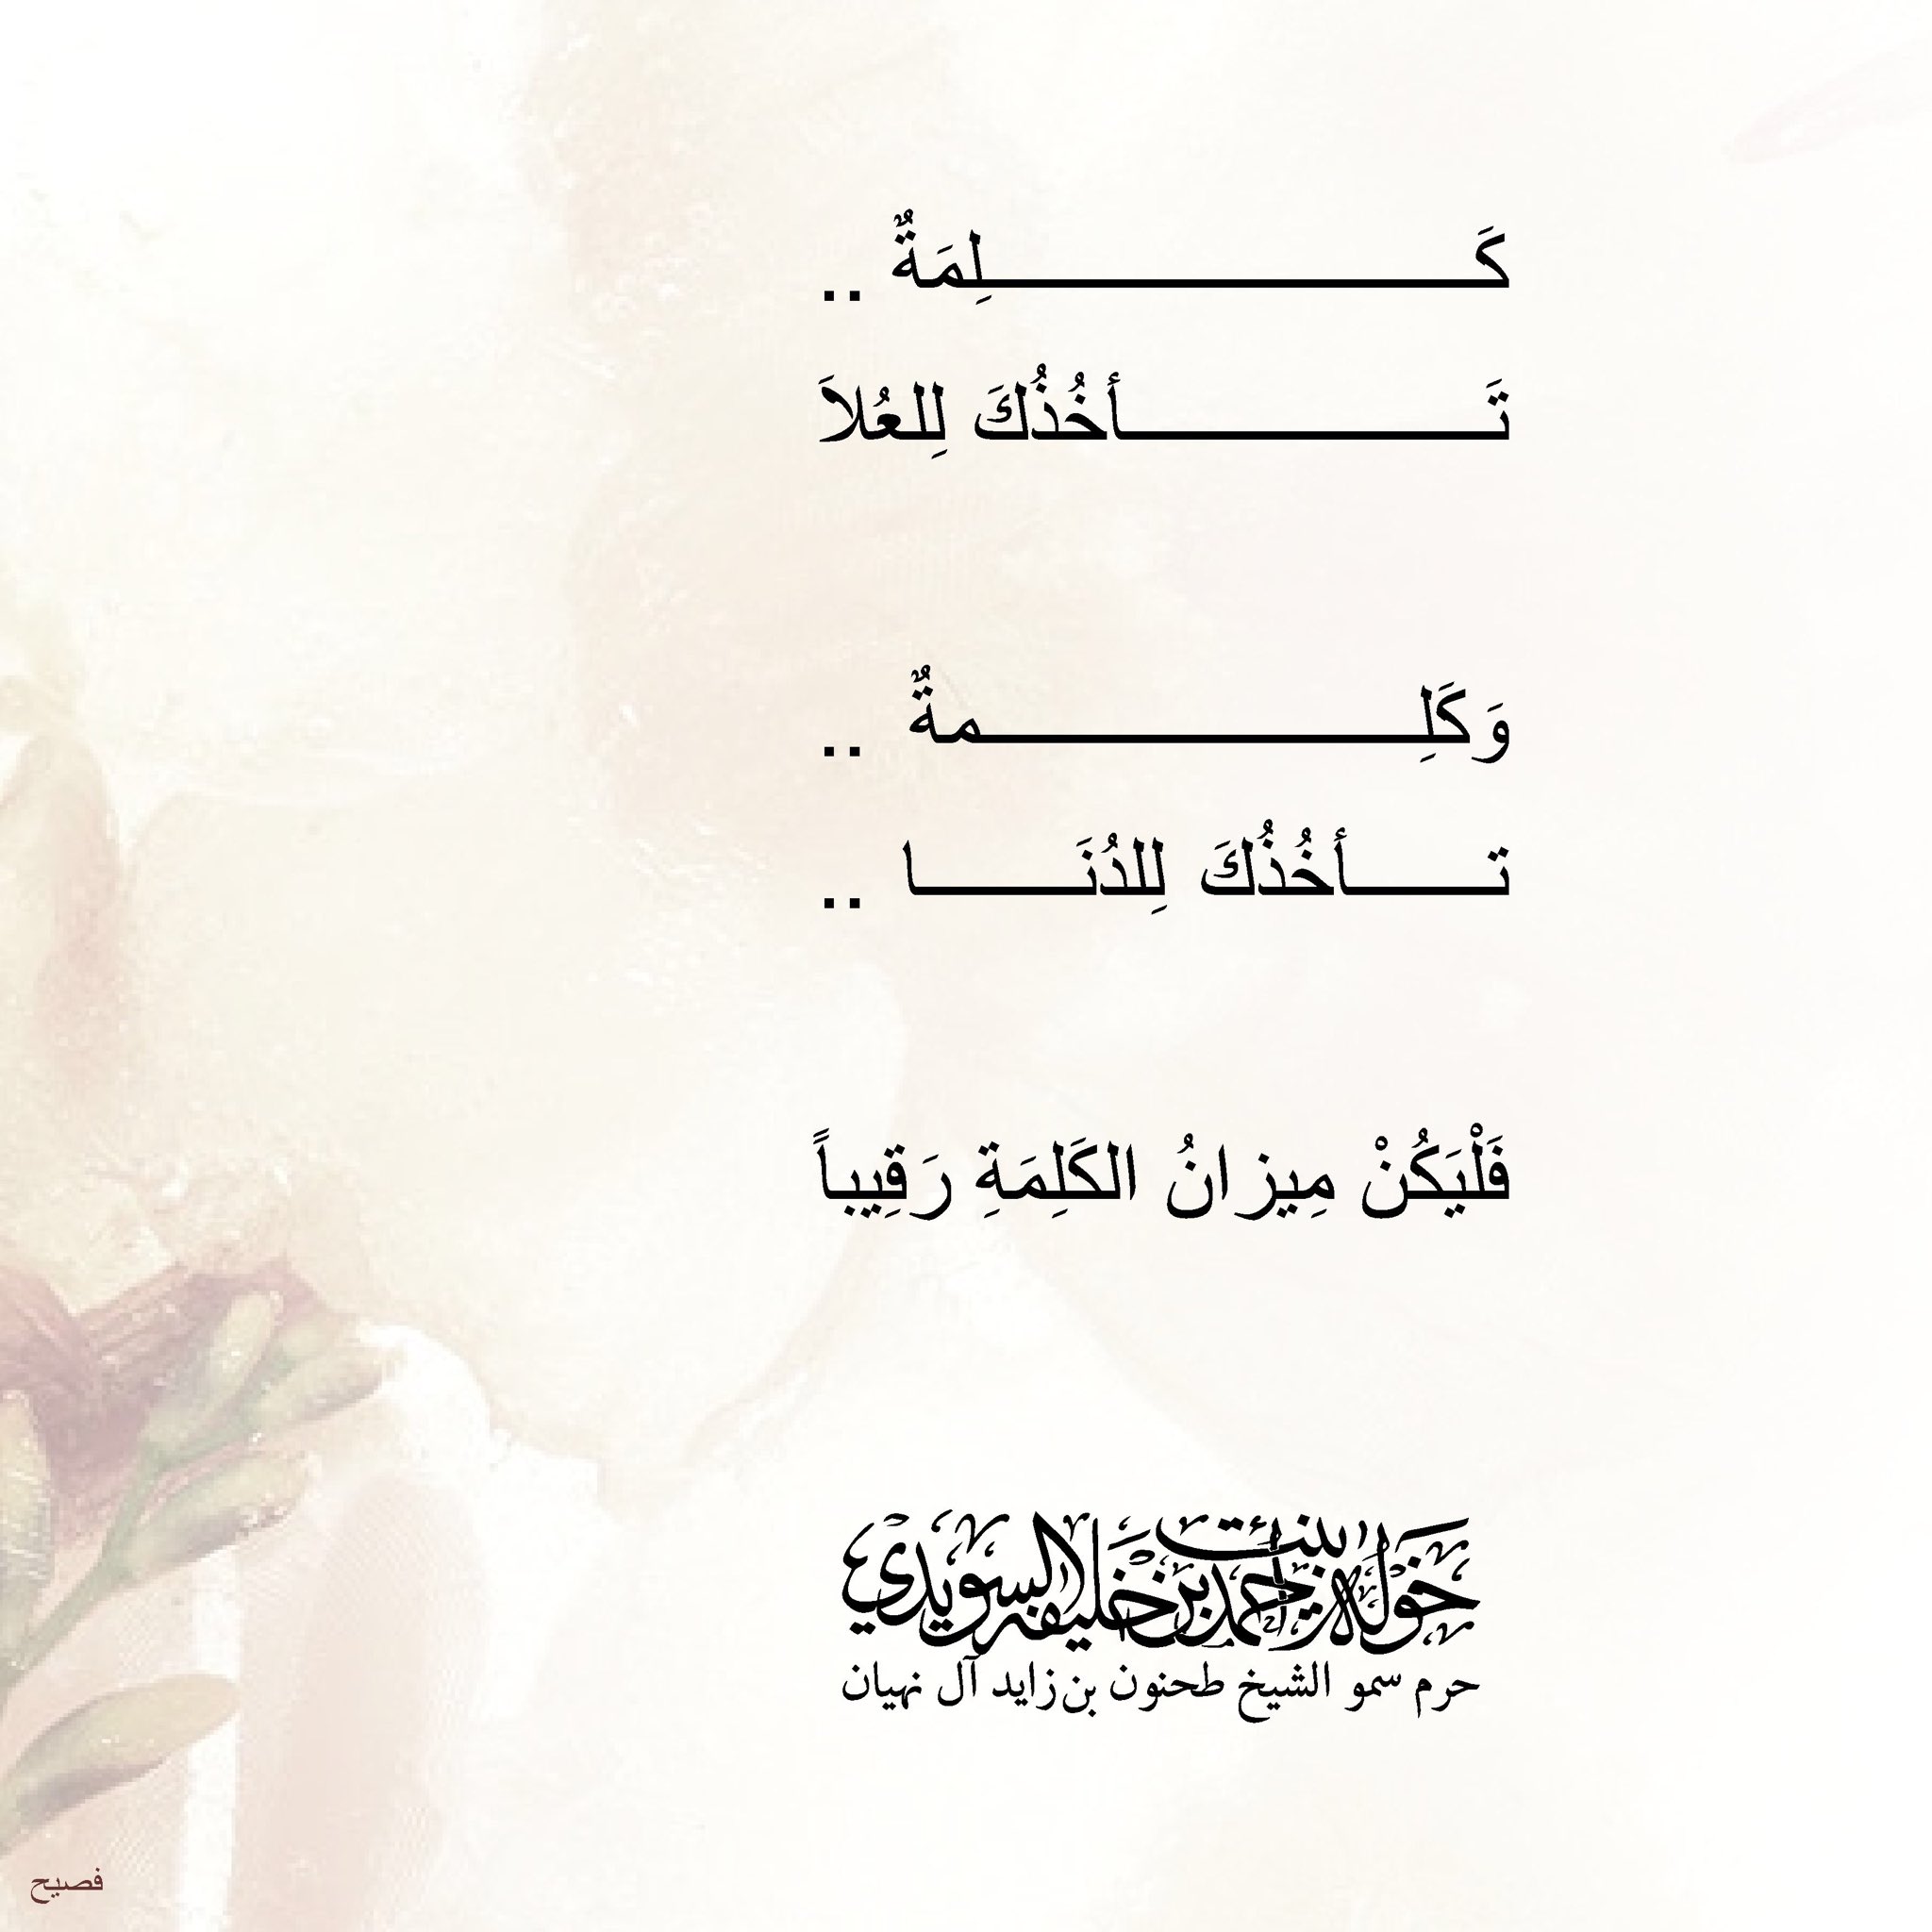 كَـــــــــــــــــلِمَةٌ ..
تَـــــــــــــأخُذُكَ لِلعُلاَ
وَكَلِـــــــــــــــمةٌ ..
تـــــــأخُذُكَ لِلدُنَـــــــا ..
فَلْيَكُنْ مِيزانُ الكَلِمَةِ رَقِيباً
خولة بنت أحمد بن خليفة السويدي
حرم سمو الشيخ طحنون بن زايد آل نهيان
فصيح